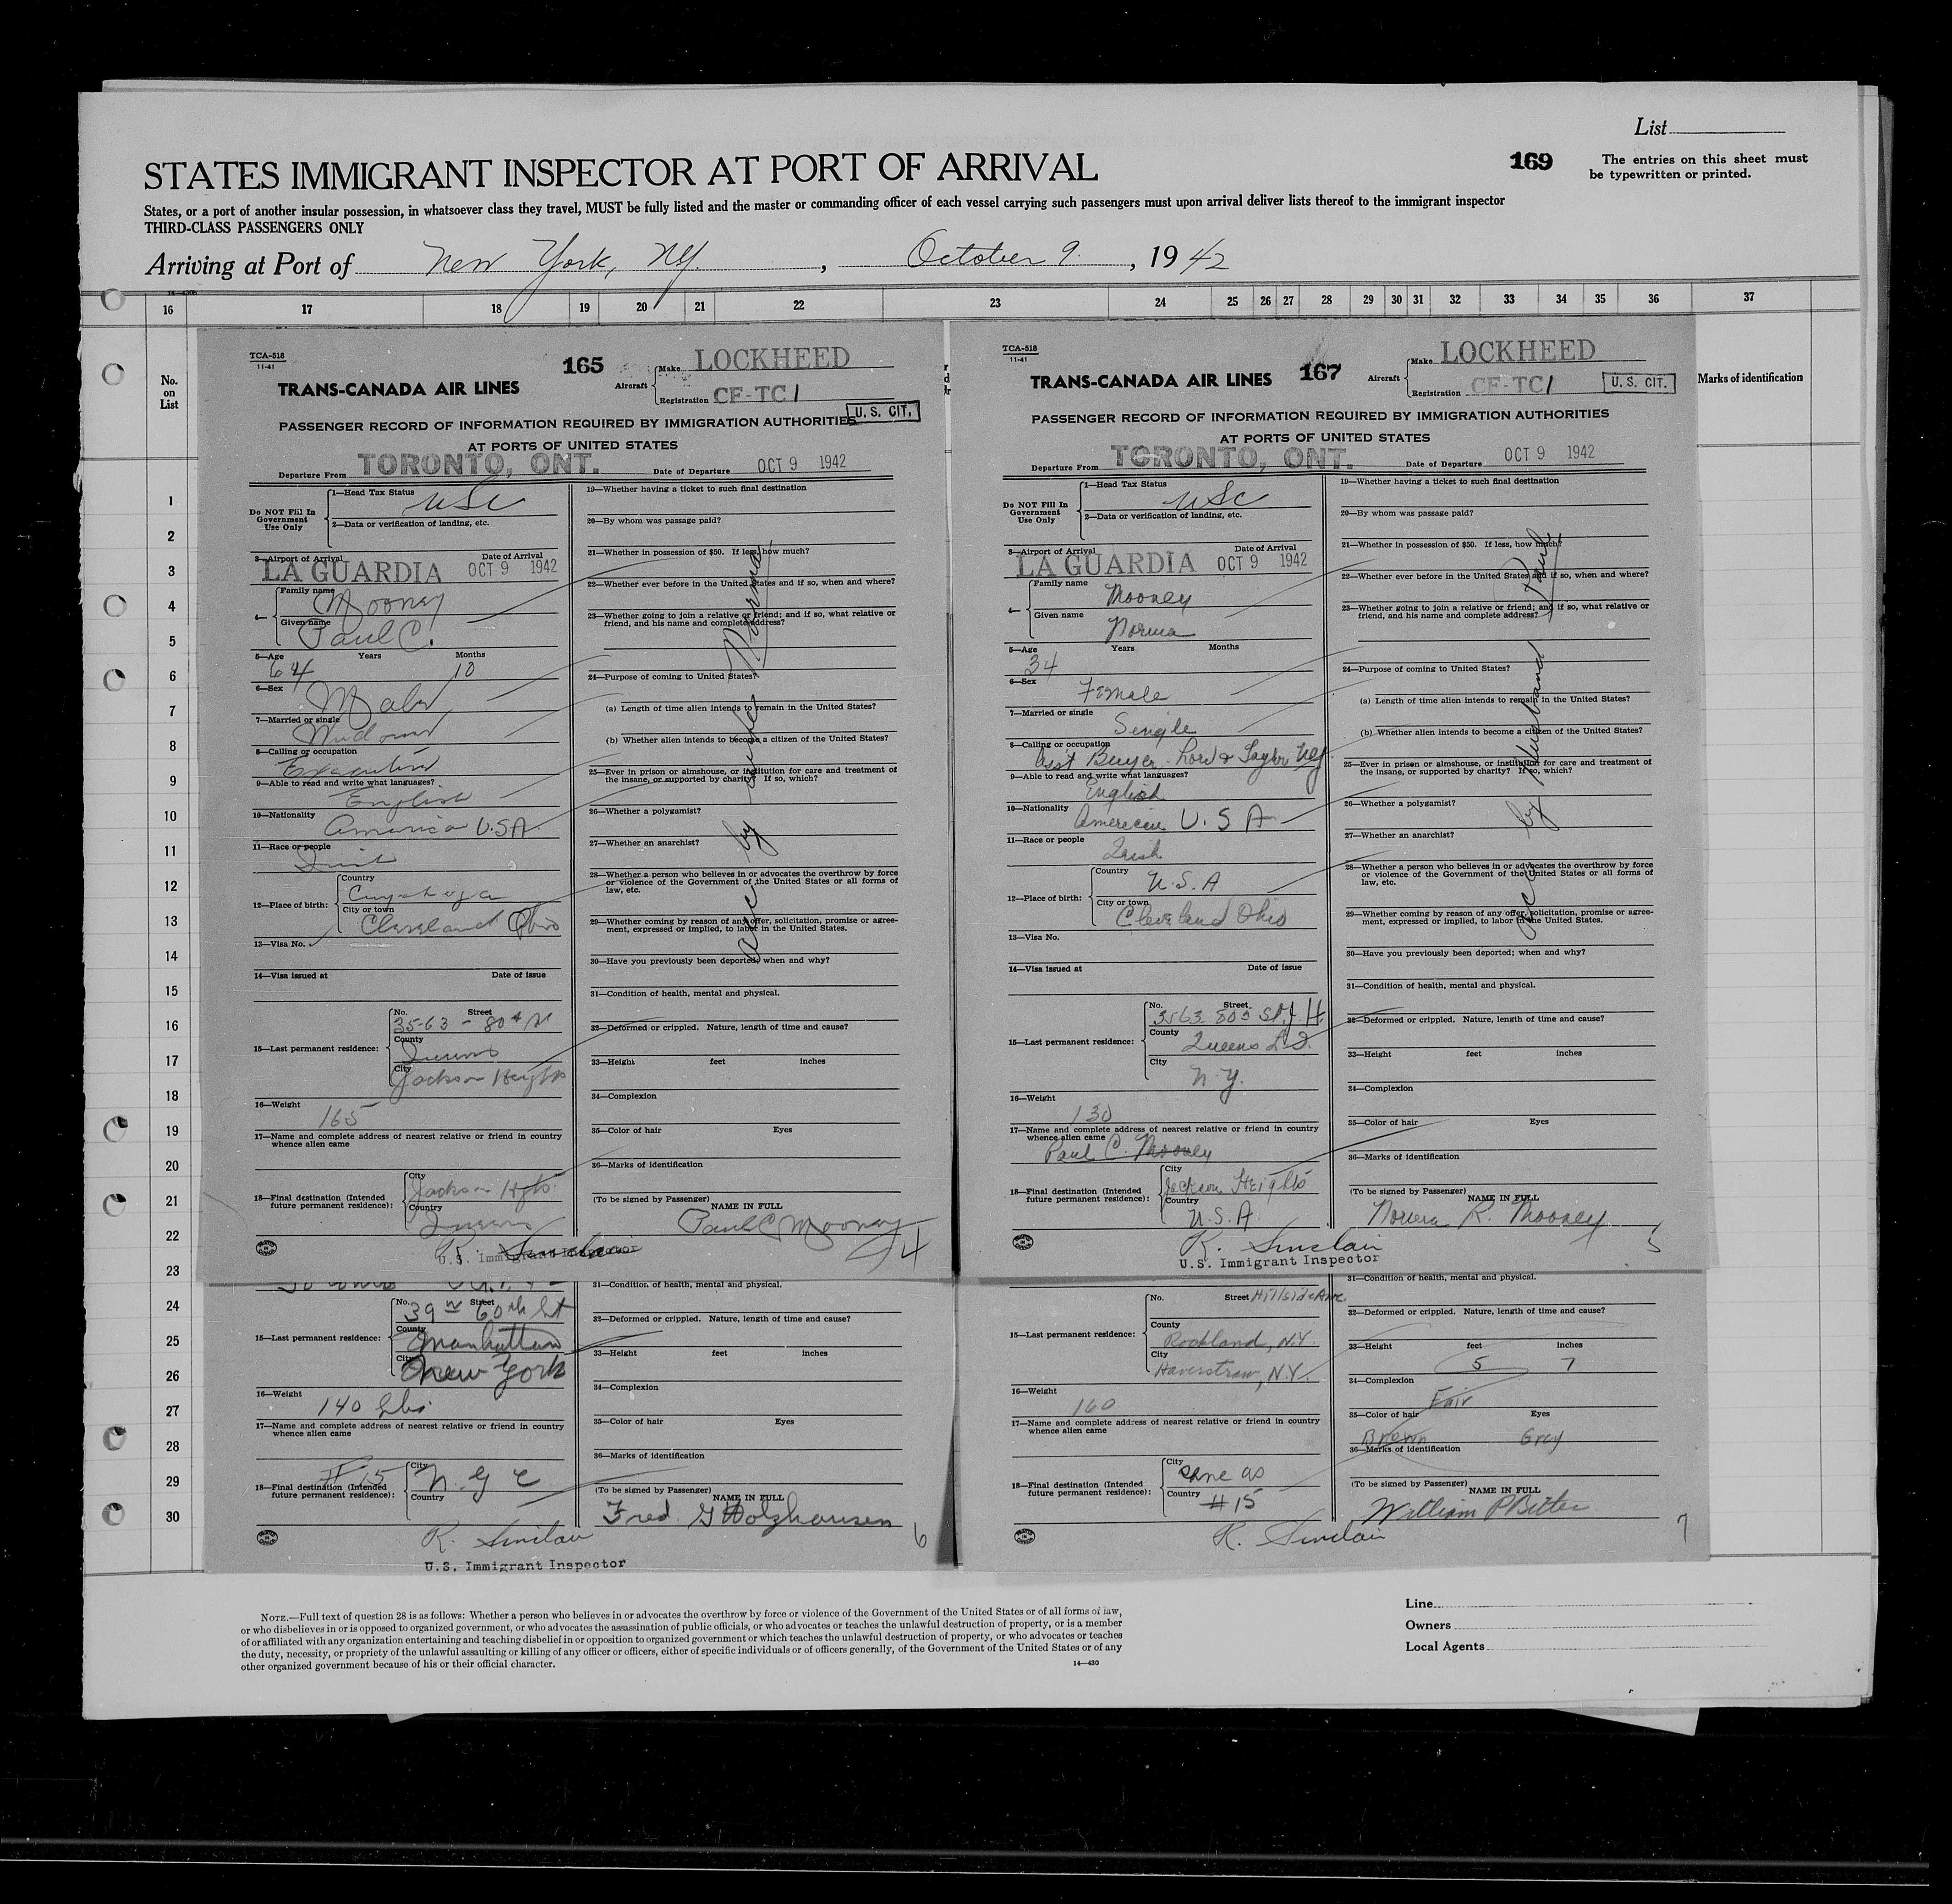 List
STATES IMMIGRANT INSPECTOR AT PORT OF ARRIVAL
169
The entries on this sheet must
be typewritten or printed.
States, or a port of another insular possession, in whatsoever class they travel, MUST be fully listed and the master or commanding officer of each vessel carrying such passengers must upon arrival deliver lists thereof to the immigrant inspector
THIRD-CLASS PASSENGERS ONLY
Arriving at Port of New York, NY. , October 9. , 1942
16 17 18 19 20 21 22 23 24 25 26 27 28 29 30 31 32 33 34 35 36 37
No.
on
List
Marks of identification
1
2
3
4
5
6
7
8
9
10
11
12
13
14
15
16
17
18
19
20
21
22
23
24
25
26
27
28
29
30
TCA-518
11-41
165
TRANS-CANADA AIR LINES
Aircraft
Make LOCKHEED
Registration CF-TC1
U. S. CIT.
PASSENGER RECORD OF INFORMATION REQUIRED BY IMMIGRATION AUTHORITIES
AT PORTS OF UNITED STATES
Departure From TORONTO, ONT. Date of Departure OCT 9 1942
Do NOT Fill In
Government
Use Only
1—Head Tax Status USC
2—Data or verification of landing, etc.
3—Airport of Arrival Date of Arrival
LA GUARDIA OCT 9 1942
4— Family name Mooney
Given name Paul C.
5—Age Years Months
64 10
6—Sex Male
7—Married or single
8—Calling or occupation
Executive
9—Able to read and write what languages?
English
10—Nationality America U.S.A.
11—Race or people
12—Place of birth:
Country Cuyahoga
City or town Cleveland Ohio
13—Visa No.
14—Visa issued at Date of issue
15—Last permanent residence:
No. Street 35-63 - 80th St
County Queens
City Jackson Heights
16—Weight 165
17—Name and complete address of nearest relative or friend in country
whence alien came
18—Final destination (Intended
future permanent residence):
City Jackson Hghts.
Country Queens
U.S. Immigrant Inspector
19—Whether having a ticket to such final destination
20—By whom was passage paid?
21—Whether in possession of $50. If less, how much?
22—Whether ever before in the United States and if so, when and where?
23—Whether going to join a relative or friend; and if so, what relative or
friend, and his name and complete address?
24—Purpose of coming to United States?
(a) Length of time alien intends to remain in the United States?
(b) Whether alien intends to become a citizen of the United States?
25—Ever in prison or almshouse, or institution for care and treatment of
the insane, or supported by charity? If so, which?
26—Whether a polygamist?
27—Whether an anarchist?
28—Whether a person who believes in or advocates the overthrow by force
or violence of the Government of the United States or all forms of
law, etc.
29—Whether coming by reason of any offer, solicitation, promise or agree-
ment, expressed or implied, to labor in the United States.
30—Have you previously been deported; when and why?
31—Condition of health, mental and physical.
32—Deformed or crippled. Nature, length of time and cause?
33—Height feet inches
34—Complexion
35—Color of hair Eyes
36—Marks of identification
(To be signed by Passenger)
NAME IN FULL
Paul C Mooney
4
by Norma
TCA-518
11-41
167
TRANS-CANADA AIR LINES
Aircraft
Make LOCKHEED
Registration CF-TC1
U. S. CIT.
PASSENGER RECORD OF INFORMATION REQUIRED BY IMMIGRATION AUTHORITIES
AT PORTS OF UNITED STATES
Departure From TORONTO, ONT. Date of Departure OCT 9 1942
Do NOT Fill In
Government
Use Only
1—Head Tax Status USC
2—Data or verification of landing, etc.
3—Airport of Arrival Date of Arrival
LA GUARDIA OCT 9 1942
4— Family name Mooney
Given name Norma
5—Age Years Months
34
6—Sex Female
7—Married or single Single
8—Calling or occupation
Asst Buyer - Lord & Taylor NY
9—Able to read and write what languages?
English
10—Nationality American U.S.A
11—Race or people
Irish
12—Place of birth:
Country U.S.A
City or town Cleveland Ohio
13—Visa No.
14—Visa issued at Date of issue
15—Last permanent residence:
No. Street 3563 80 St J.H.
County Queens L.I.
City N.Y.
16—Weight 130
17—Name and complete address of nearest relative or friend in country
whence alien came
Paul C. Mooney
18—Final destination (Intended
future permanent residence):
City Jackson Heights
Country U.S.A.
R. Sinclair
U.S. Immigrant Inspector
19—Whether having a ticket to such final destination
20—By whom was passage paid?
21—Whether in possession of $50. If less, how much?
22—Whether ever before in the United States and if so, when and where?
23—Whether going to join a relative or friend; and if so, what relative or
friend, and his name and complete address?
24—Purpose of coming to United States?
(a) Length of time alien intends to remain in the United States?
(b) Whether alien intends to become a citizen of the United States?
25—Ever in prison or almshouse, or institution for care and treatment of
the insane, or supported by charity? If so, which?
26—Whether a polygamist?
27—Whether an anarchist?
28—Whether a person who believes in or advocates the overthrow by force
or violence of the Government of the United States or all forms of
law, etc.
29—Whether coming by reason of any offer, solicitation, promise or agree-
ment, expressed or implied, to labor in the United States.
30—Have you previously been deported; when and why?
31—Condition of health, mental and physical.
32—Deformed or crippled. Nature, length of time and cause?
33—Height feet inches
34—Complexion
35—Color of hair Eyes
36—Marks of identification
(To be signed by Passenger)
NAME IN FULL
Norma R. Mooney
5
by husband Paul
15—Last permanent residence:
No. Street 39 W 60th St
County Manhattan
City New York
16—Weight 140 lbs.
17—Name and complete address of nearest relative or friend in country
whence alien came
18—Final destination (Intended
future permanent residence):
#15
City N.Y.C
Country
R. Sinclair
U.S. Immigrant Inspector
31—Condition of health, mental and physical.
32—Deformed or crippled. Nature, length of time and cause?
33—Height feet inches
34—Complexion
35—Color of hair Eyes
36—Marks of identification
(To be signed by Passenger)
NAME IN FULL
Fred. G Holzhausen
6
15—Last permanent residence:
No. Street Hillside Ave
County Rockland, N.Y.
City Haverstraw, N.Y.
16—Weight 160
17—Name and complete address of nearest relative or friend in country
whence alien came
18—Final destination (Intended
future permanent residence):
City Same as
Country #15
R. Sinclair
31—Condition of health, mental and physical.
32—Deformed or crippled. Nature, length of time and cause?
33—Height feet inches
5 7
34—Complexion
Fair
35—Color of hair Eyes
Brown Grey
36—Marks of identification
(To be signed by Passenger)
NAME IN FULL
William P Bitter
7
NOTE.—Full text of question 28 is as follows: Whether a person who believes in or advocates the overthrow by force or violence of the Government of the United States or of all forms of law,
or who disbelieves in or is opposed to organized government, or who advocates the assassination of public officials, or who advocates or teaches the unlawful destruction of property, or is a member
of or affiliated with any organization entertaining and teaching disbelief in or opposition to organized government or which teaches the unlawful destruction of property, or who advocates or teaches
the duty, necessity, or propriety of the unlawful assaulting or killing of any officer or officers, either of specific individuals or of officers generally, of the Government of the United States or of any
other organized government because of his or their official character.
14—430
Line
Owners
Local Agents